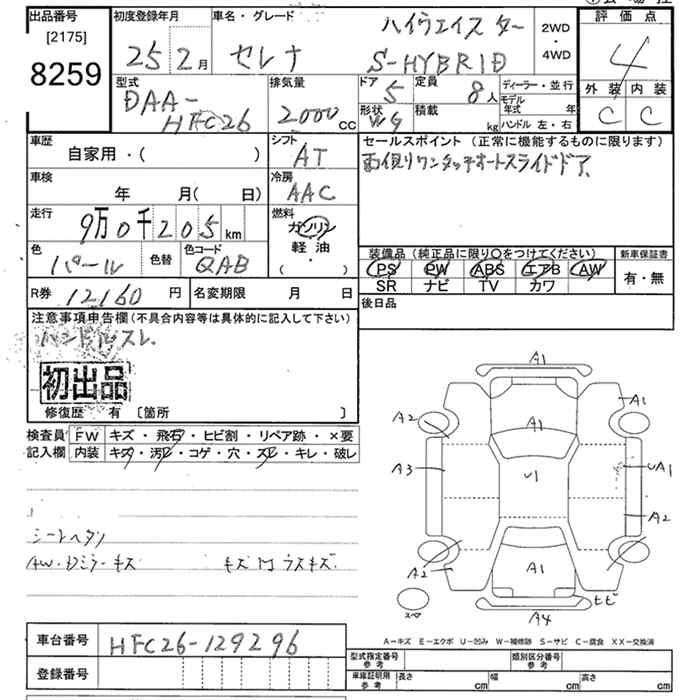 出品番号
[2175]
8259
初度登録年月
25 2月
車名・グレード
セレナ
ハイウェイスター
S-HYBRID
2WD
・
4WD
評価点
4
外装 内装
C C
型式
DAA-
HFC26
排気量
2000 cc
ドア 5
定員 8人
形状 WG
積載 kg
ディーラー・並行
モデル年式 年
ハンドル 左・右
車歴
自家用・( )
シフト
AT
車検
年 月( 日)
冷房
AAC
走行
9万0千205km
燃料
ガソリン
軽油
・
( )
色
パール
色替
色コード
QAB
R券 12160円
名変期限 月 日
セールスポイント (正常に機能するものに限ります)
両側ワンタッチオートスライドドア
装備品 (純正品に限り○をつけてください)
PS PW ABS エアB AW
SR ナビ TV カワ
新車保証書
有・無
後日品
注意事項申告欄(不具合内容等は具体的に記入して下さい)
ハンドルスレ
初出品
修復歴 有 [箇所 ]
検査員記入欄
FW キズ・飛石・ヒビ割・リペア跡・×要
内装 キズ・汚レ・コゲ・穴・スレ・キレ・破レ
シートヘタリ
AW・Dミラーキズ
A1
A2
A1
A1
A3
U1
UA1
A2
A2
A1
ヒビ
A4
スペア
A-キズ E-エクボ U-凹み W-補修跡 S-サビ C-腐食 XX-交換済
車台番号 HFC26-129296
登録番号
型式指定番号 参考
類別区分番号 参考
車庫証明用 参考
長さ cm
幅 cm
高さ cm